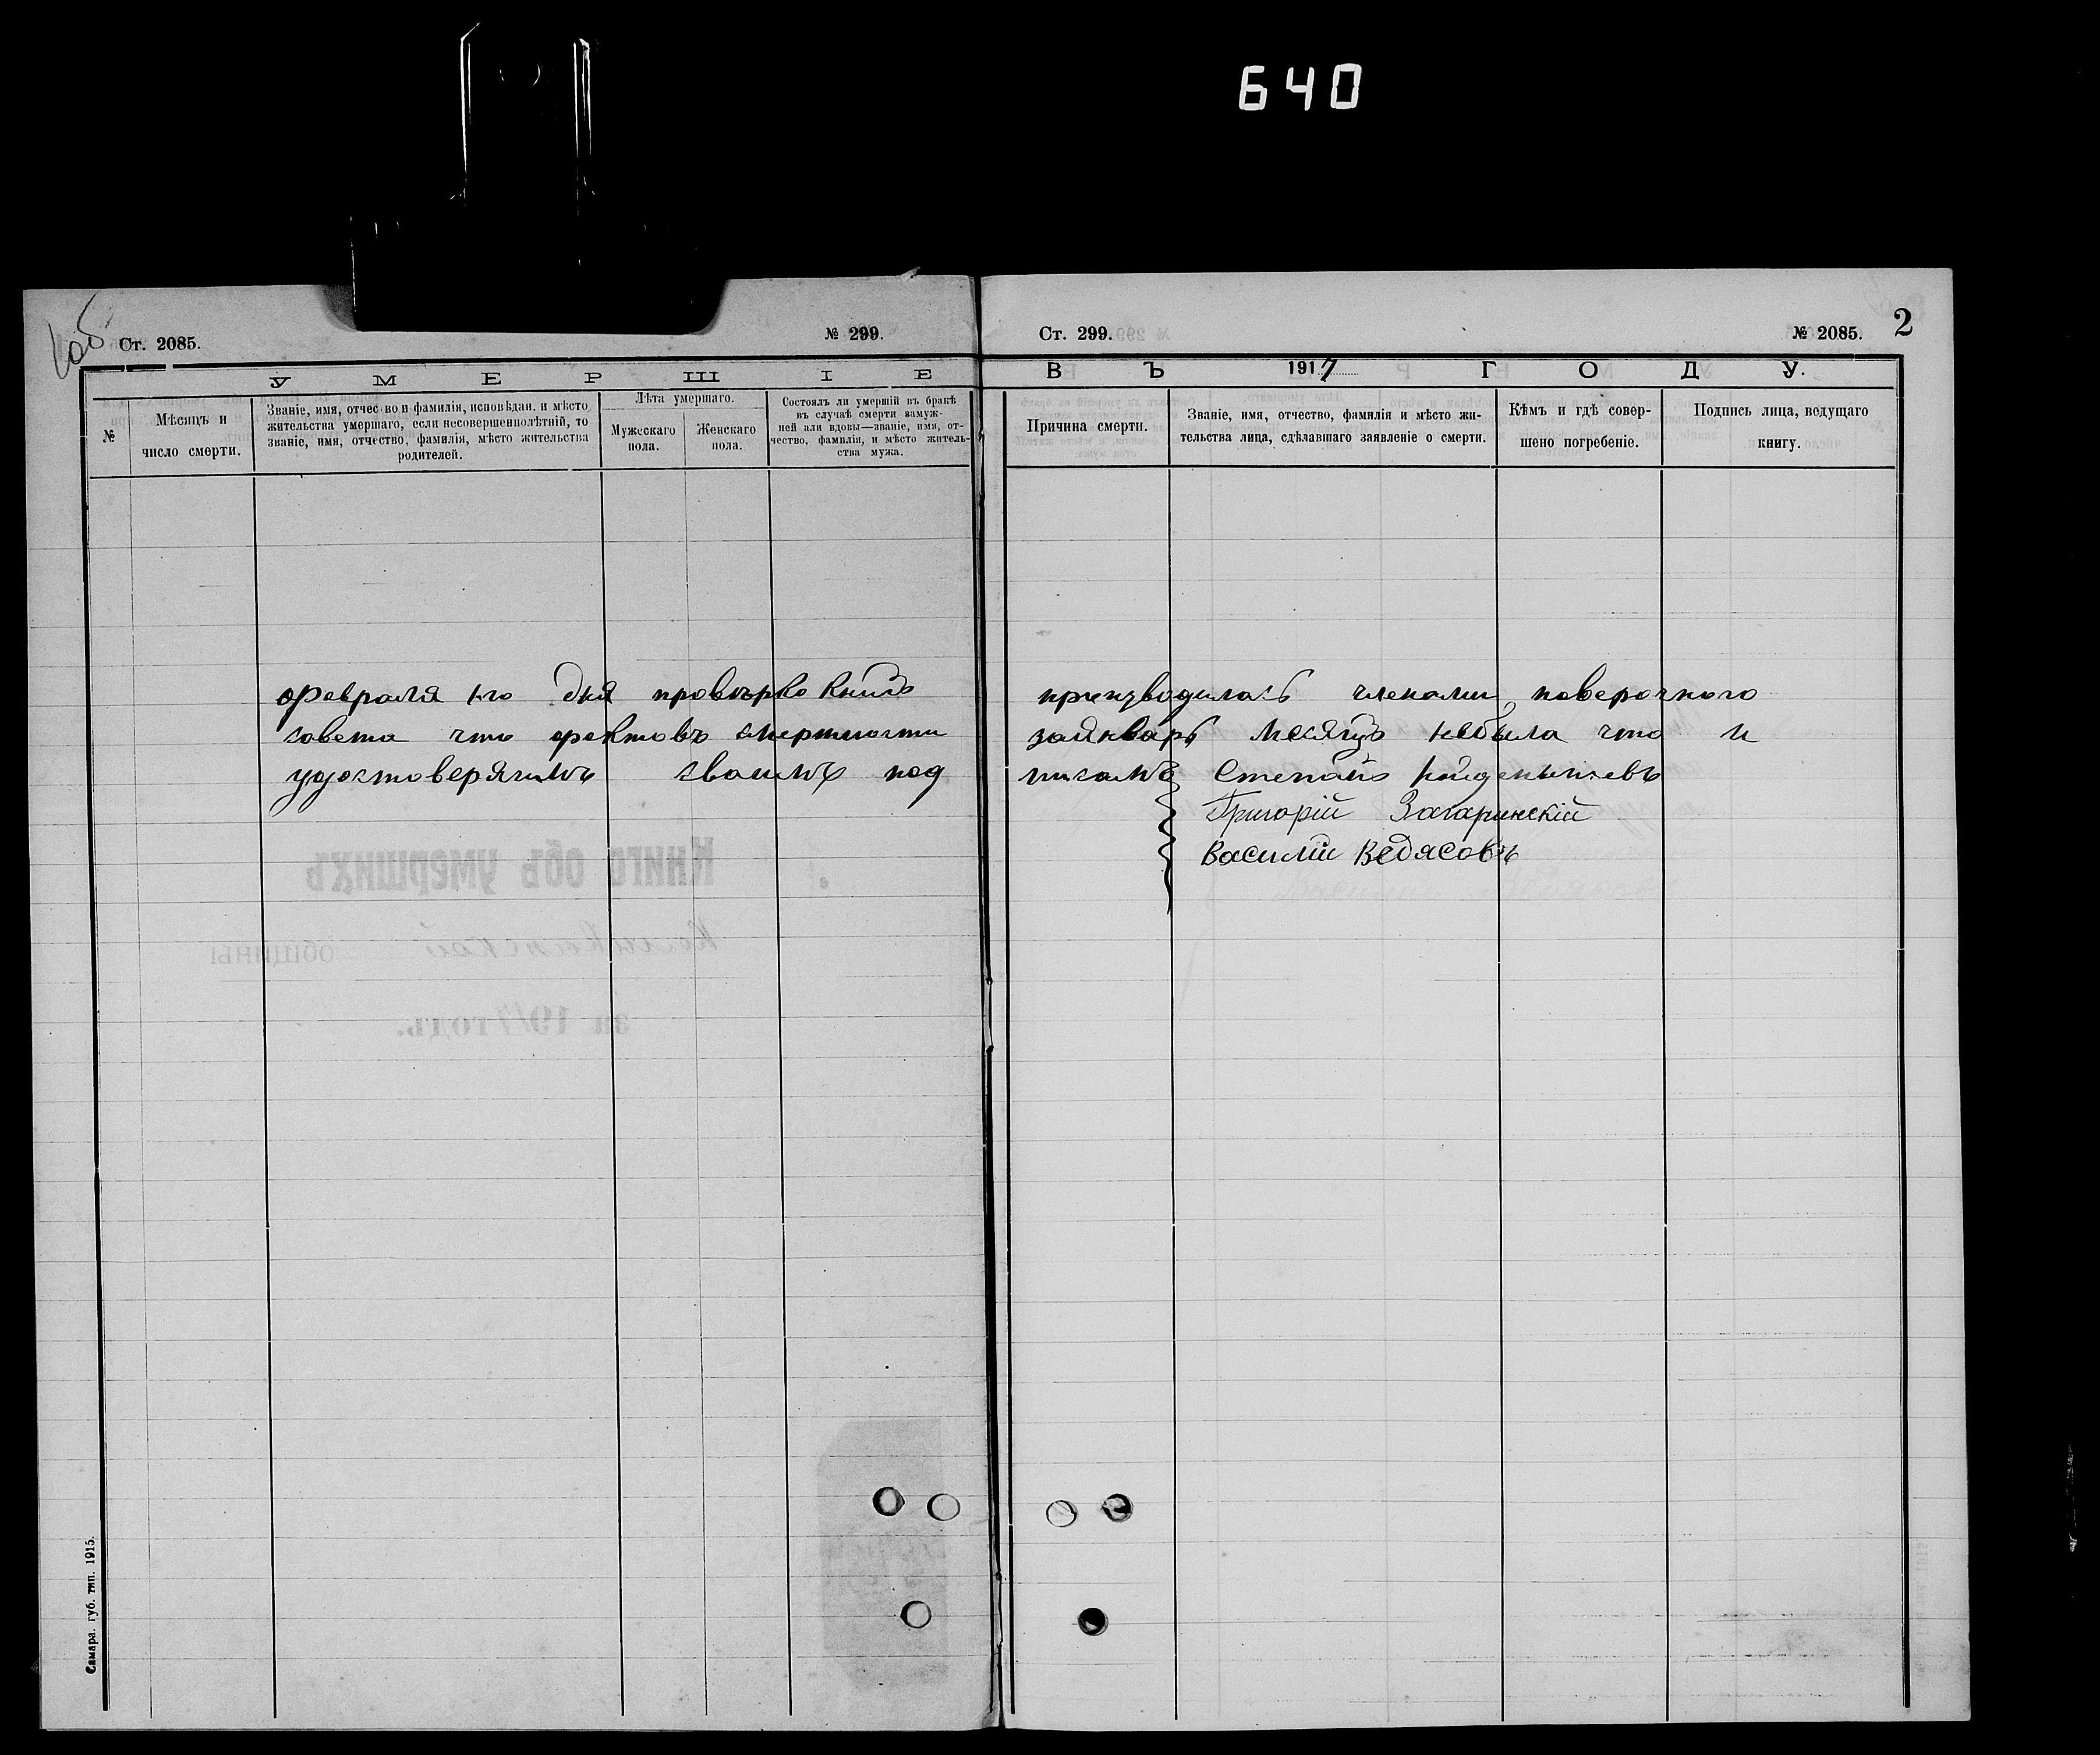 640
Ст. 2085.
№ 299.
Ст. 299.
№ 2085.
2
УМЕРШІЕ
ВЪ 1917 ГОДУ.
№
Мѣсяцъ и
число смерти.
Званіе, имя, отчество и фамилія, исповѣдан. и мѣсто
жительства умершаго, если несовершеннолѣтній, то
званіе, имя, отчество, фамилія, мѣсто жительства
родителей.
Лѣта умершаго.
Мужескаго
пола.
Женскаго
пола.
Состоялъ ли умершій въ бракѣ
въ случаѣ смерти замуж-
ней али вдовы—званіе, имя, от-
чество, фамилія, и мѣсто житель-
ства мужа.
Причина смерти.
Званіе, имя, отчество, фамилія и мѣсто жи-
тельства лица, сдѣлавшаго заявленіе о смерти.
Кѣмъ и гдѣ совер-
шено погребеніе.
Подпись лица, ведущаго
книгу.
февраля 1го дня провѣрка книгъ производилась членами поверочного
совета что фактовъ смертности заянварь месяцъ небыла что и
удостоверяимъ своимъ под писамъ Степанъ
Григорій Загаринскій
Василій Ведясовъ
Книга объ умершихъ
общины
за 1917 годъ.
Самара. губ. тип. 1915.